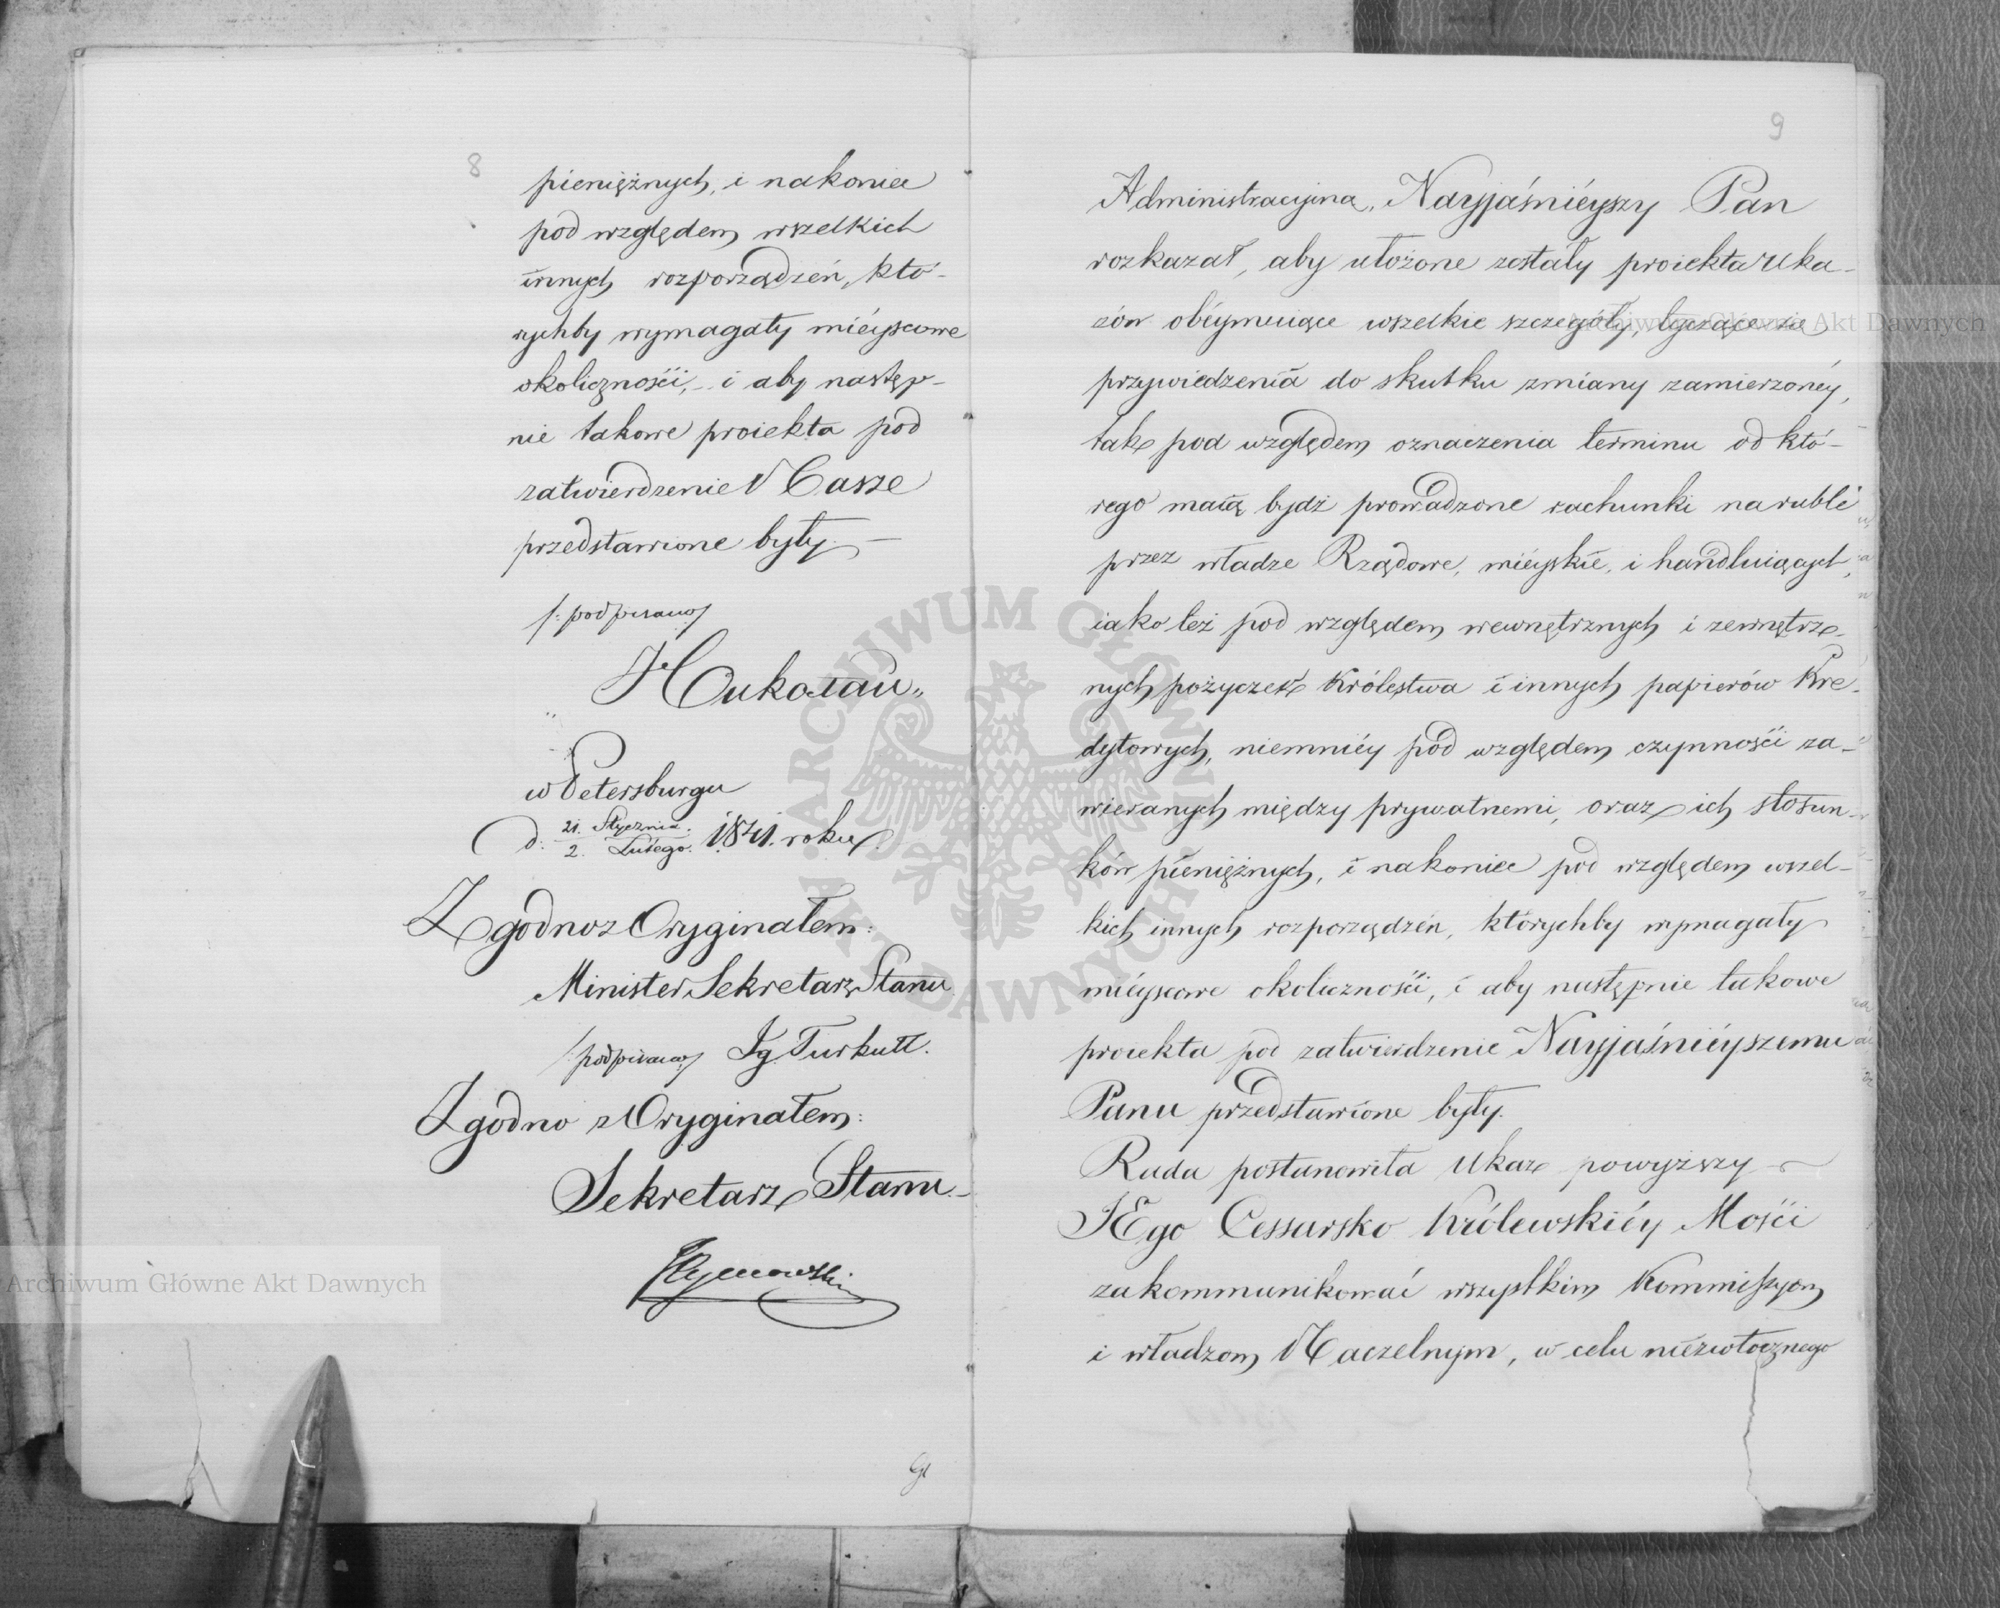 8
pieniężnych, i nakoniec
pod względem wszelkich
innych rozporządzeń, któ-
rychby wymagały mieyscowe
okoliczności, i aby następ-
nie takowe proiekta pod
zatwierdzenie Nasze
przedstawione były. —
/: podpisano/
Николай„
w Petersburgu
d. 21. Stycznia. / 2. Lutego. 1841. roku.
Zgodno z Oryginałem:
Minister Sekretarz Stanu
/: podpisano/ Ig. Turkułł.
Zgodno z Oryginałem:
Sekretarz Stanu. —
9
Administracyjna, Nayjaśnieyszy Pan
rozkazał, aby ułożone zostały proiekta Uka-
zów obeymuiące wszelkie szczegóły, tyczące się
przywiedzenia do skutku zmiany zamierzoney,
tak pod względem oznaczenia terminu od któ-
rego maią bydź prowadzone rachunki na ruble
przez władze Rządowe, mieyskie, i handluiących,
iako też pod względem wewnętrznych i zewnętrz-
nych pożyczek Królestwa i innych papierów Kre-
dytowych, niemniey pod względem czynności za-
wieranych między prywatnemi, oraz ich stosun-
ków pieniężnych, i nakoniec pod względem wszel-
kich innych rozporządzeń, którychby wymagały
mieyscowe okoliczności, i aby następnie takowe
proiekta pod zatwierdzenie Nayjaśnieyszemu
Panu przedstawione były.
Rada postanowiła Ukaz powyższy
JEgo Cessarsko Królewskiéy Mości
zakommunikować wszystkim Kommissyom
i władzom Naczelnym, w celu niezwłocznego
Archiwum Główne Akt Dawnych
Archiwum Główne Akt Dawnych
ARCHIWUM GŁÓWNE AKT DAWNYCH